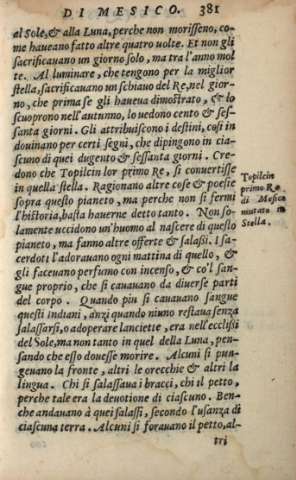 DI MESICO. 381
al Sole, & alla Luna, perche non morisseno, co-
me haueano fatto altre quatro uolte. Et non gli
sacrificauano un giorno solo, ma tra l'anno mol
te. Al luminare, che tengono per la miglior
stella, sacrificauano un schiauo del Re, nel gior-
no, che prima se gli haueua dimostrato, & lo
scuoprono nell'autunno, lo uedono cento & ses-
santa giorni. Gli attribuiscono i destini, cosi in
douinano per certi segni, che dipingono in cia-
scuno di quei dugento & sessanta giorni. Cre-
dono che Topilcin lor primo Re, si conuertisse
in quella stella. Ragionano altre cose & poesie
sopra questo pianeto, ma perche non si fermi
l'historia, basta hauerne detto tanto. Non so-
lamente uccidono un'huomo al nascere di questo
pianeto, ma fanno altre offerte & salassi. I sa-
cerdoti l'adorauano ogni mattina di quello, &
gli faceuano perfumo con incenso, & co'l san-
gue proprio, che si cauauano da diuerse parti
del corpo. Quando piu si cauauano sangue
questi Indiani, anzi quando niuno restaua senza
salassarsi, o adoperare lanciette, era nell'ecclissi
del Sole, ma non tanto in quel della Luna, pen-
sando che esso douesse morire. Alcuni si pun-
geuano la fronte, altri le orecchie & altri la
lingua. Chi si salassaua i bracci, chi il petto,
perche tale era la deuotione di ciascuno. Ben-
che andauano à quei salassi, secondo l'usanza di
ciascuna terra. Alcuni si forauano il petto, al-
tri
Topilcin
primo Re
di Mesico
mutato in
Stella.